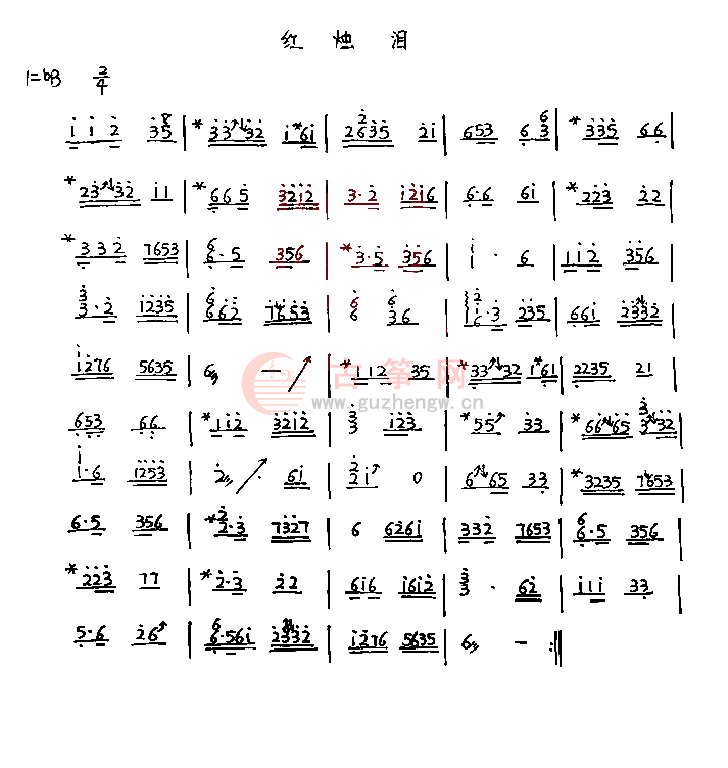 红烛泪
1=bB 2/4
i i 2 35 | *3332 i*6i | 2635 2i | 653 63 | *335 66 |
*23332 11 | *665 32i2 | 3·2 i2i6 | 6·6 6i | *223 22 |
*332 7653 | 6·5 356 | *3·5 356 | i·6 | 112 356 |
3·2 1235 | 662 7653 | 6 36 | 6·3 235 | 66i 2332 |
i276 5635 | 6 — | *112 35 | *3332 1*61 | 2235 21 |
653 66 | *1i2 32i2 | 3 i23 | *55 33 | *6665 332 |
1·6 1253 | 2 · 6i | 2i 0 | 665 33 | *3235 7653 |
6·5 356 | *2·3 7327 | 6 626i | 332 7653 | 6·5 356 |
*223 77 | *2·3 22 | 6i6 i6i2 | 3 · 62 | i1i 33 |
5·6 26 | 6·56i 2332 | i276 5635 | 6 — :||
古筝网
www.guzhengw.cn